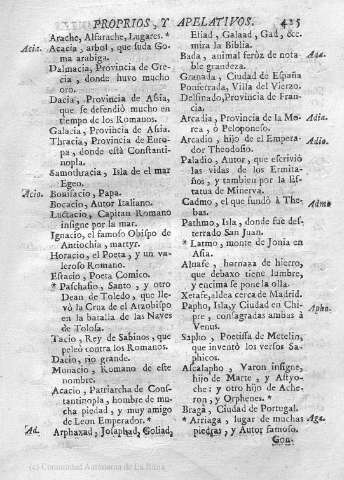 PROPRIOS, Y APELATIVOS. 425
Arache, Alfarache, Lugares. *
Acia. Acacia, arbol, que suda Go-
ma arabiga.
Dalmacia, Provincia de Gre-
cia, donde huvo mucho
oro.
Dacia, Provincia de Asia,
que se defendió mucho en
tiempo de los Romanos.
Galacia, Provincia de Asia.
Thracia, Provincia de Euro-
pa, donde está Constanti-
nopla.
Samothracia, Isla de el mar
Egeo.
Acio. Bonifacio, Papa.
Bocacio, Autor Italiano.
Luctacio, Capitan Romano
insigne por la mar.
Ignacio, el famoso Obispo de
Antiochia, martyr.
Horacio, el Poeta, y un va-
leroso Romano.
Estacio, Poeta Comico.
* Paschasio, Santo, y otro
Dean de Toledo, que lle-
vó la Cruz de el Arzobispo
en la batalla de las Naves
de Tolosa.
Tacio, Rey de Sabinos, que
peleó contra los Romanos.
Dacio, rio grande.
Monacio, Romano de este
nombre.
Acacio, Patriarcha de Cons-
tantinopla, hombre de mu-
cha piedad, y muy amigo
de Leon Emperador. *
Ad. Arphaxad, Josaphad, Goliad,
Eliad, Galaad, Gad, &c.
mira la Biblia.
Bada, animal feróz de nota- Ada.
ble grandeza.
Granada, Ciudad de España
Ponferrada, Villa del Vierzo.
Delfinado, Provincia de Fran-
cia.
Arcadia, Provincia de la Mo- Adia.
rea, ó Peloponeso.
Arcadio, hijo de el Empera- Adio.
dor Theodosio.
Paladio, Autor, que escrivió
las vidas de los Ermita-
ños, y tambien por la Es-
tatua de Minerva.
Cadmo, el que fundó à The- Admo
bas.
Pathmo, Isla, donde fue des-
terrado San Juan.
* Latmo, monte de Jonia en
Asia.
Alnafe, hornaza de hierro,
que debaxo tiene lumbre,
y encima se pone la olla.
Xetafe, Aldea cerca de Madrid.
Papho, Isla, y Ciudad en Chi- Apho.
pre, consagradas ambas à
Venus.
Sapho, Poetisa de Metelin,
que inventó los versos Sa-
phicos.
Ascalapho, Varon insigne,
hijo de Marte, y Astyo-
che; y otro hijo de Ache-
ron, y Orphenes. *
Braga, Ciudad de Portugal.
* Arriaga, lugar de muchas Aga.
piedras, y Autor famoso.
Gon-
(c) Comunidad Autónoma de La Rioja